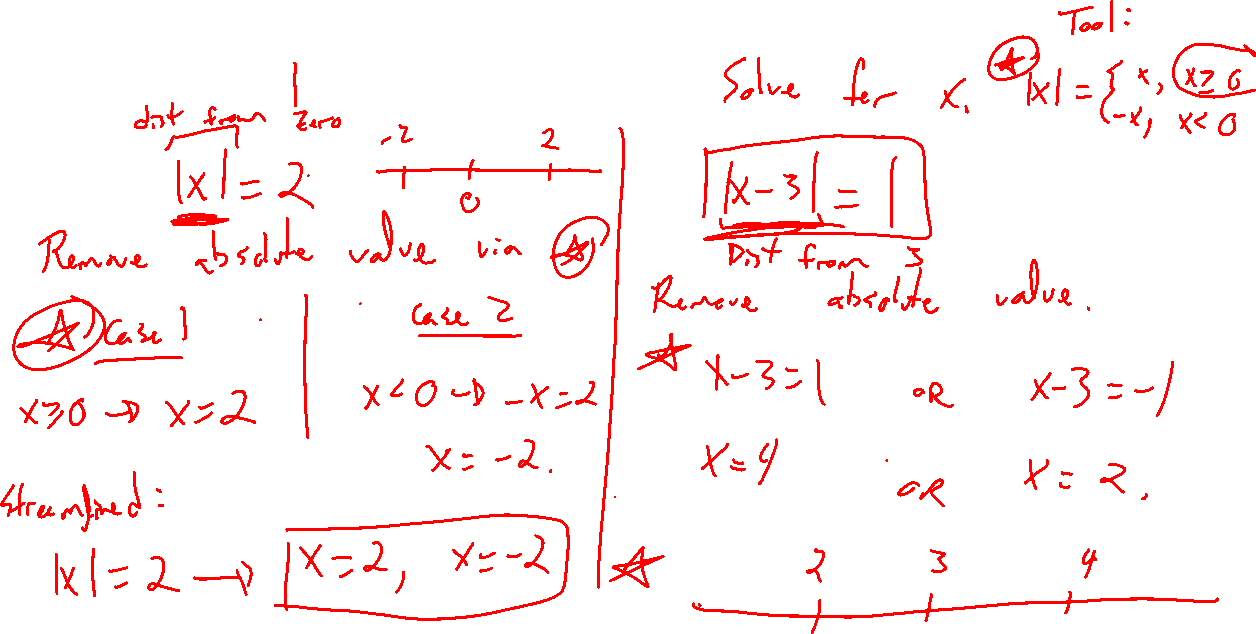 dist from zero
|x| = 2
-2 0 2
Remove absolute value via ☆
☆ Case 1
x≥0 → x=2
Case 2
x<0 → -x=2
x=-2.
Streamlined:
|x| = 2 → x=2, x=-2
Tool:
Solve for x. ☆ |x| = { x, x≥0
-x, x<0
|x-3| = 1
Dist from 3
Remove absolute value.
☆ x-3=1 OR x-3=-1
x=4 OR x=2.
☆ 2 3 4